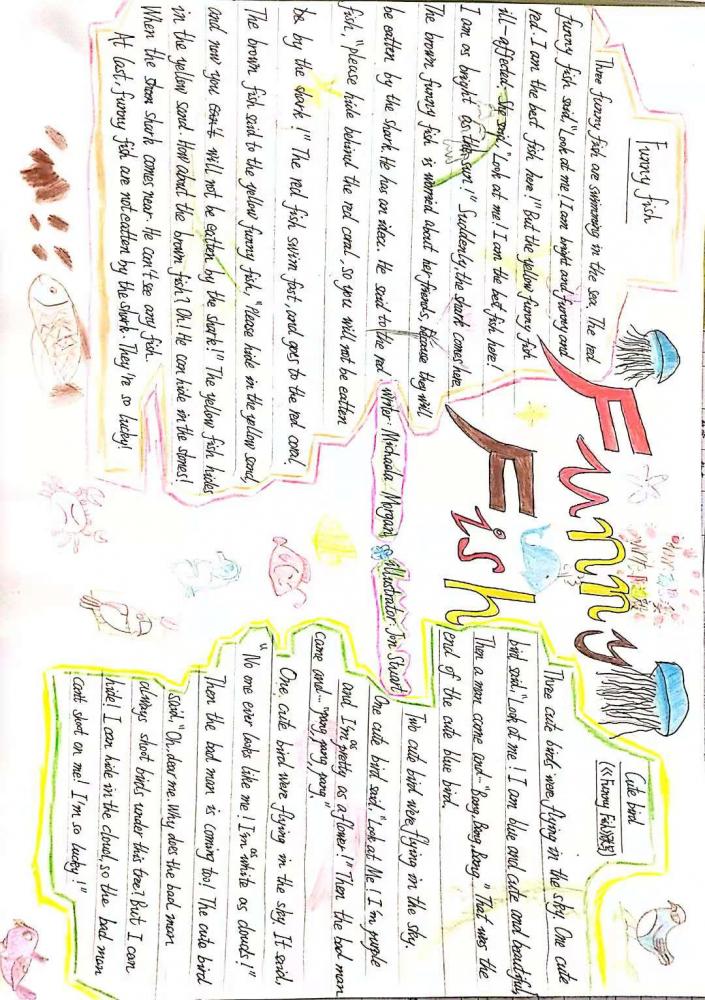 Funny Fish
writer: Michaela Morgan illustrator: Jon Stuart
Funny fish
Three funny fish are swimming in the sea. The red
funny fish said "Look at me! I am bright and funny and
red. I am the best fish here!" But the yellow funny fish
ill-affected. She said, "Look at me! I am the best fish here!
I am as bright as the sun!" Suddenly, the shark comes here.
The brown funny fish is worried about her friends, because they will
be eatten by the shark. He has an idea. He said to the red
fish, "please hide behind the red coral, so you will not be eatten
be by the shark!" The red fish swim fast, and goes to the red coral.
The brown fish said to the yellow funny fish, "Please hide in the yellow sand,
and now you will not be eatten by the shark!" The yellow fish hides
in the yellow sand. How about the brown fish? Oh! He can hide in the stones!
When the shark comes near. He can't see any fish.
At last, funny fish are not eatten by the shark. They're so lucky!
Cute bird
(《Funny Fish》改写)
Three cute birds were flying in the sky. One cute
bird said, "Look at me! I am blue and cute and beautiful,
Then a man came and… "Bang, Bang, Bang." That was the
end of the cute blue bird.
Two cute bird were flying in the sky.
One cute bird said, "Look at Me! I'm purple
and I'm as pretty as a flower!" Then the bad man
came and… "pang, pang, pang."
One cute bird were flying in the sky. It said,
"No one ever looks like me! I'm as white as clouds!"
Then the bad man is coming too! The cute bird
said, "Oh, dear me. Why does the bad man
always shoot birds under this tree? But I can
hide! I can hide in the cloud, so the bad man
can't shot on me! I'm so lucky!"